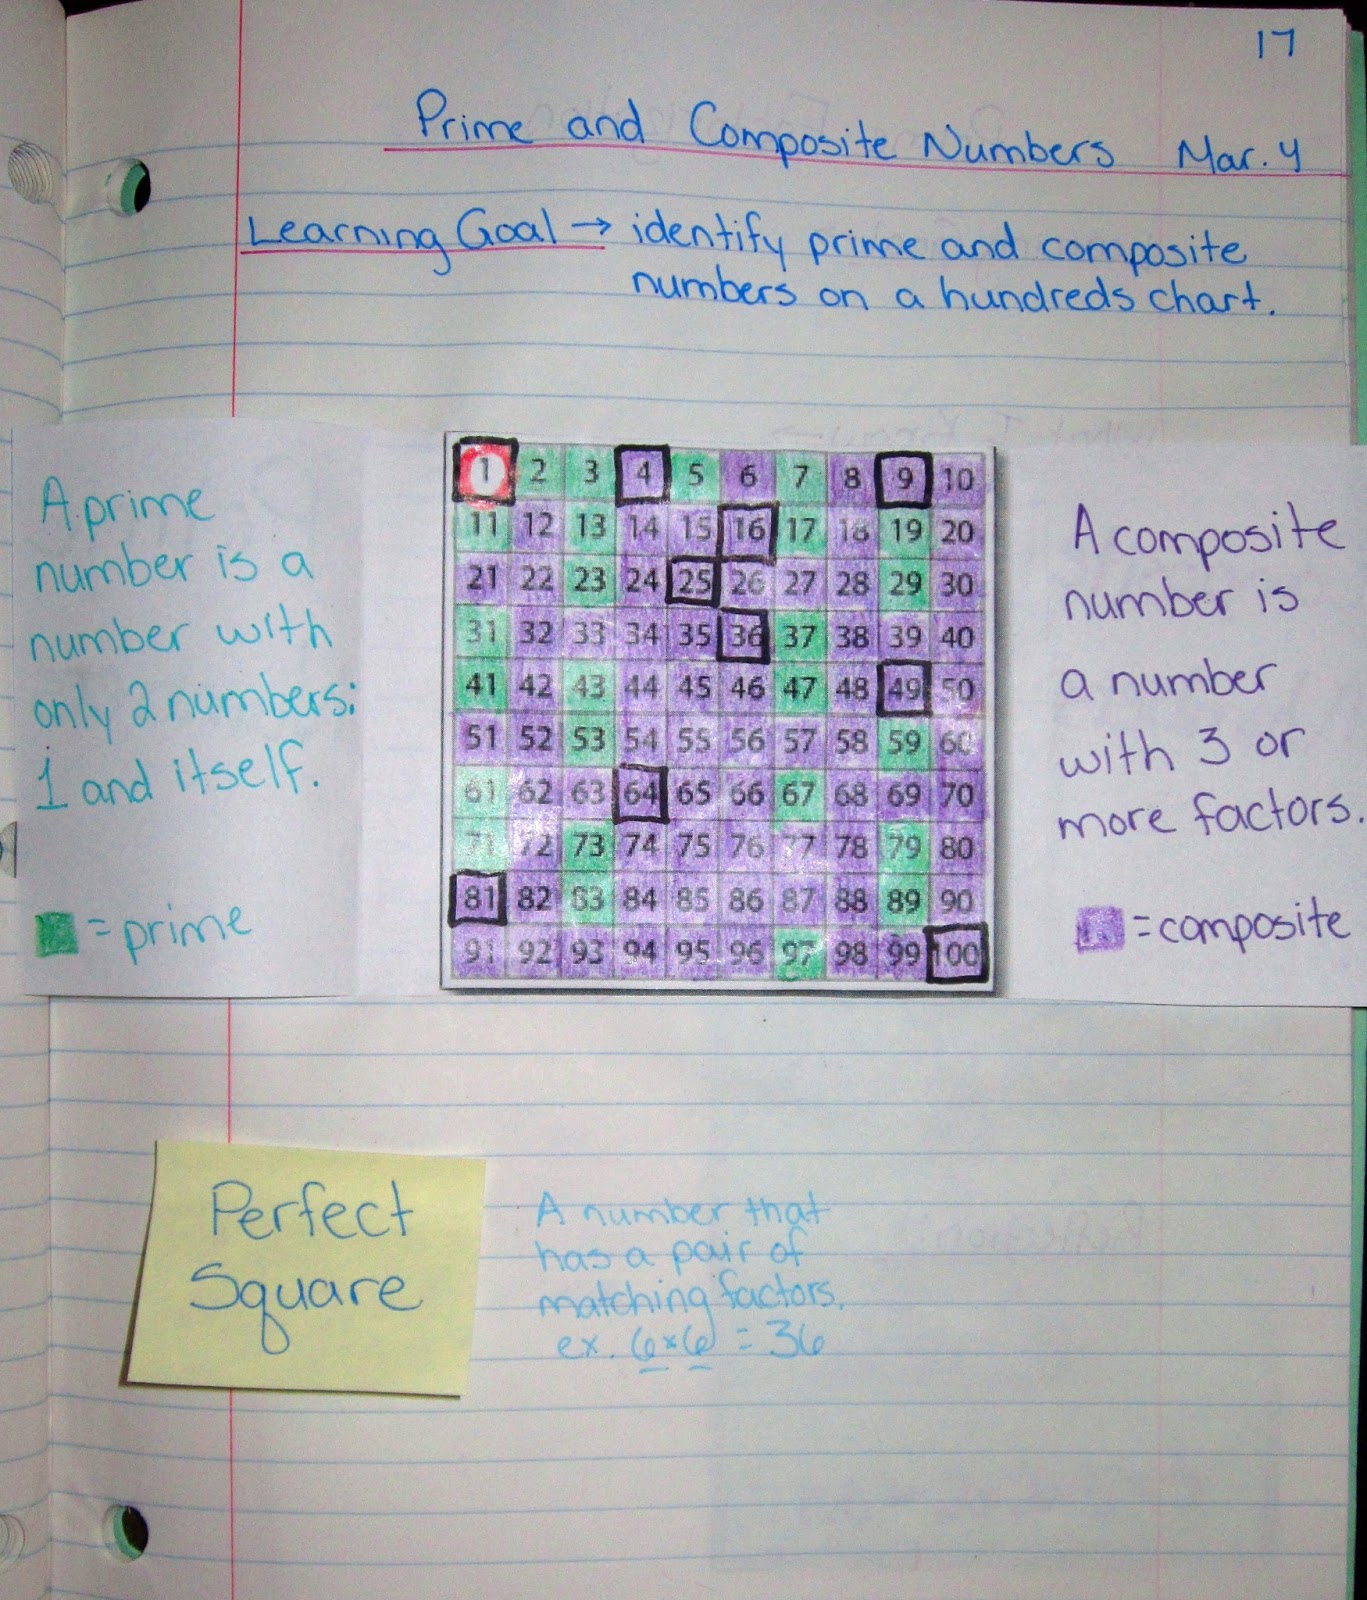 17
Prime and Composite Numbers Mar. 4
Learning Goal → identify prime and composite
numbers on a hundreds chart.
A prime
number is a
number with
only 2 numbers:
1 and itself.
= prime
1 2 3 4 5 6 7 8 9 10
11 12 13 14 15 16 17 18 19 20
21 22 23 24 25 26 27 28 29 30
31 32 33 34 35 36 37 38 39 40
41 42 43 44 45 46 47 48 49 50
51 52 53 54 55 56 57 58 59 60
61 62 63 64 65 66 67 68 69 70
71 72 73 74 75 76 77 78 79 80
81 82 83 84 85 86 87 88 89 90
91 92 93 94 95 96 97 98 99 100
A composite
number is
a number
with 3 or
more factors.
= composite
Perfect
Square
A number that
has a pair of
matching factors.
ex. 6×6 = 36